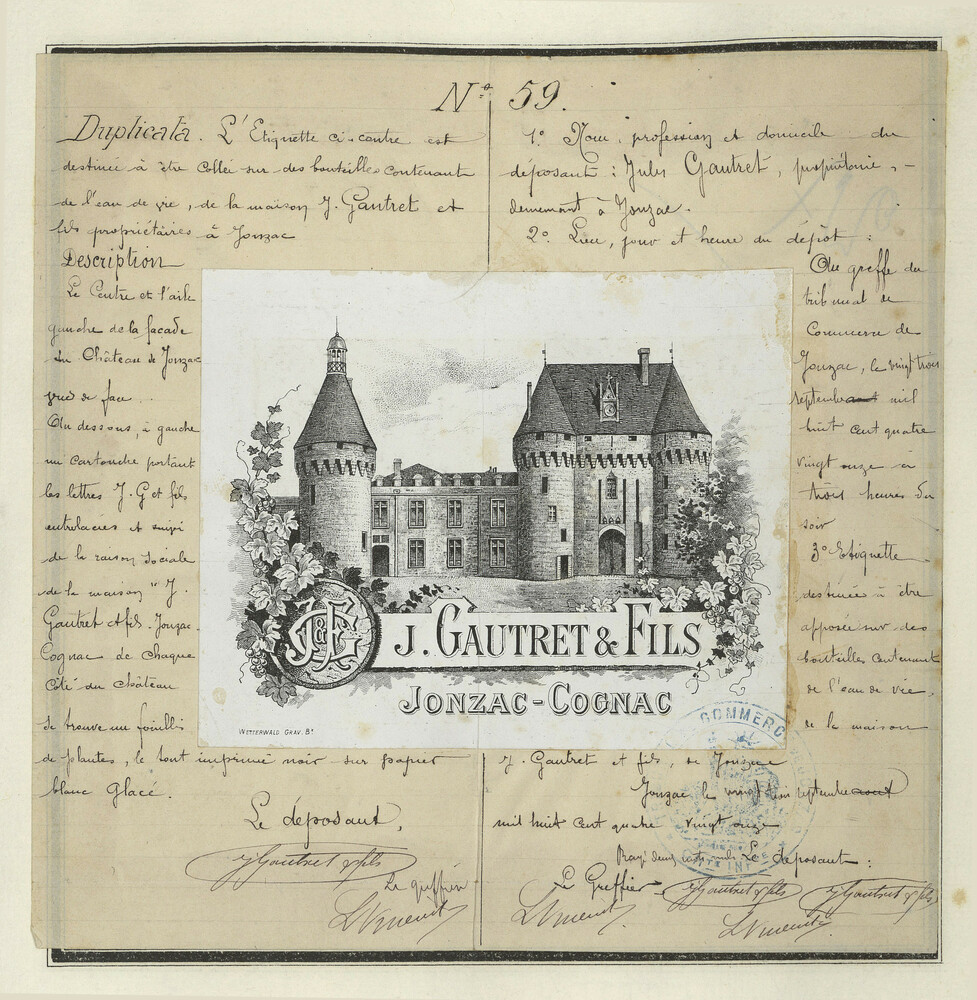 N° 59.
Duplicata. L'Etiquette ci-contre est
destinée à être collée sur des bouteilles contenant
de l'eau de vie, de la maison J. Gautret et
fils propriétaires à Jonzac
Description
Le Centre et l'aile
gauche de la façade
du Château de Jonzac
vue de face.
Au dessous, à gauche
un cartouche portant
les lettres J. G et fils
entrelacées et suivi
de la raison sociale
de la maison "J.
Gautret et fils. Jonzac-
Cognac de chaque
côté du château
se trouve un fouilli
de plantes, le tout imprimé noir sur papier
blanc glacé.
Le déposant,
J Gautret & fils
Le greffier
1° Nom, profession et domicile du
déposant : Jules Gautret, propriétaire,
demeurant à Jonzac.
2° Lieu, jour et heure du dépôt :
Au greffe du
tribunal de
Commerce de
Jonzac, le vingt trois
septembre mil
huit cent quatre
vingt onze à
trois heures du
soir
3° Etiquette
destinée à être
apposée sur des
bouteilles contenant
de l'eau de vie,
de la maison
J. Gautret et fils, de Jonzac
Jonzac le vingt trois septembre
mil huit cent quatre vingt onze
Le déposant :
Le Greffier
J Gautret & fils
J Gautret & fils
JG & F
J. GAUTRET & FILS
JONZAC-COGNAC
WETTERWALD GRAV. Bx
COMMERC